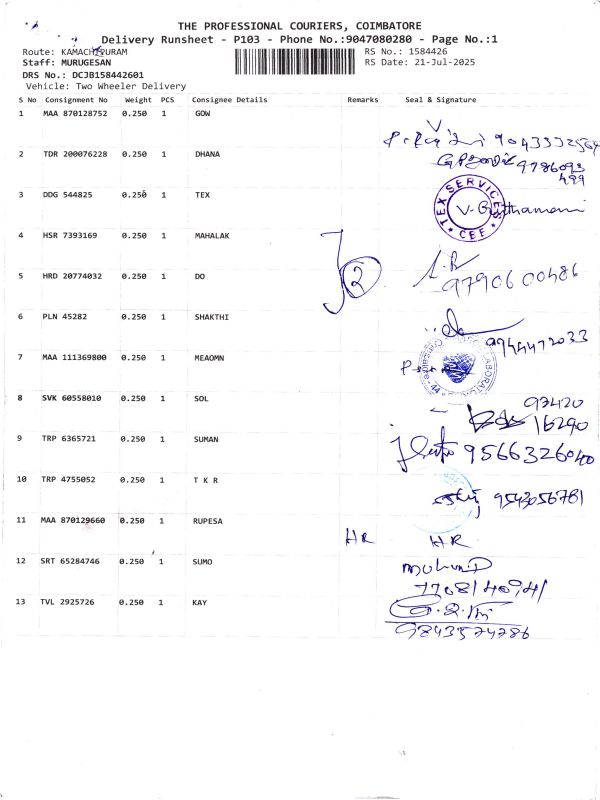 THE PROFESSIONAL COURIERS, COIMBATORE
Delivery Runsheet - P103 - Phone No.:9047080280 - Page No.:1
Route: KAMACHIPURAM RS No.: 1584426
Staff: MURUGESAN RS Date: 21-Jul-2025
DRS No.: DCJB158442601
Vehicle: Two Wheeler Delivery
S No Consignment No Weight PCS Consignee Details Remarks Seal & Signature
1 MAA 870128752 0.250 1 GOW
9043332564
2 TDR 200076228 0.250 1 DHANA
9786093
499
3 DDG 544825 0.250 1 TEX
TEX SERVICES
CBE
4 HSR 7393169 0.250 1 MAHALAK
2
5 HRD 20774032 0.250 1 DO
9790600486
6 PLN 45282 0.250 1 SHAKTHI
9944472033
7 MAA 111369800 0.250 1 MEAOMN
8 SVK 60558010 0.250 1 SOL
97420
16290
9 TRP 6365721 0.250 1 SUMAN
9566326040
10 TRP 4755052 0.250 1 T K R
9543056781
11 MAA 870129660 0.250 1 RUPESA
HR HR
12 SRT 65284746 0.250 1 SUMO
7708140941
13 TVL 2925726 0.250 1 KAY
9843574786